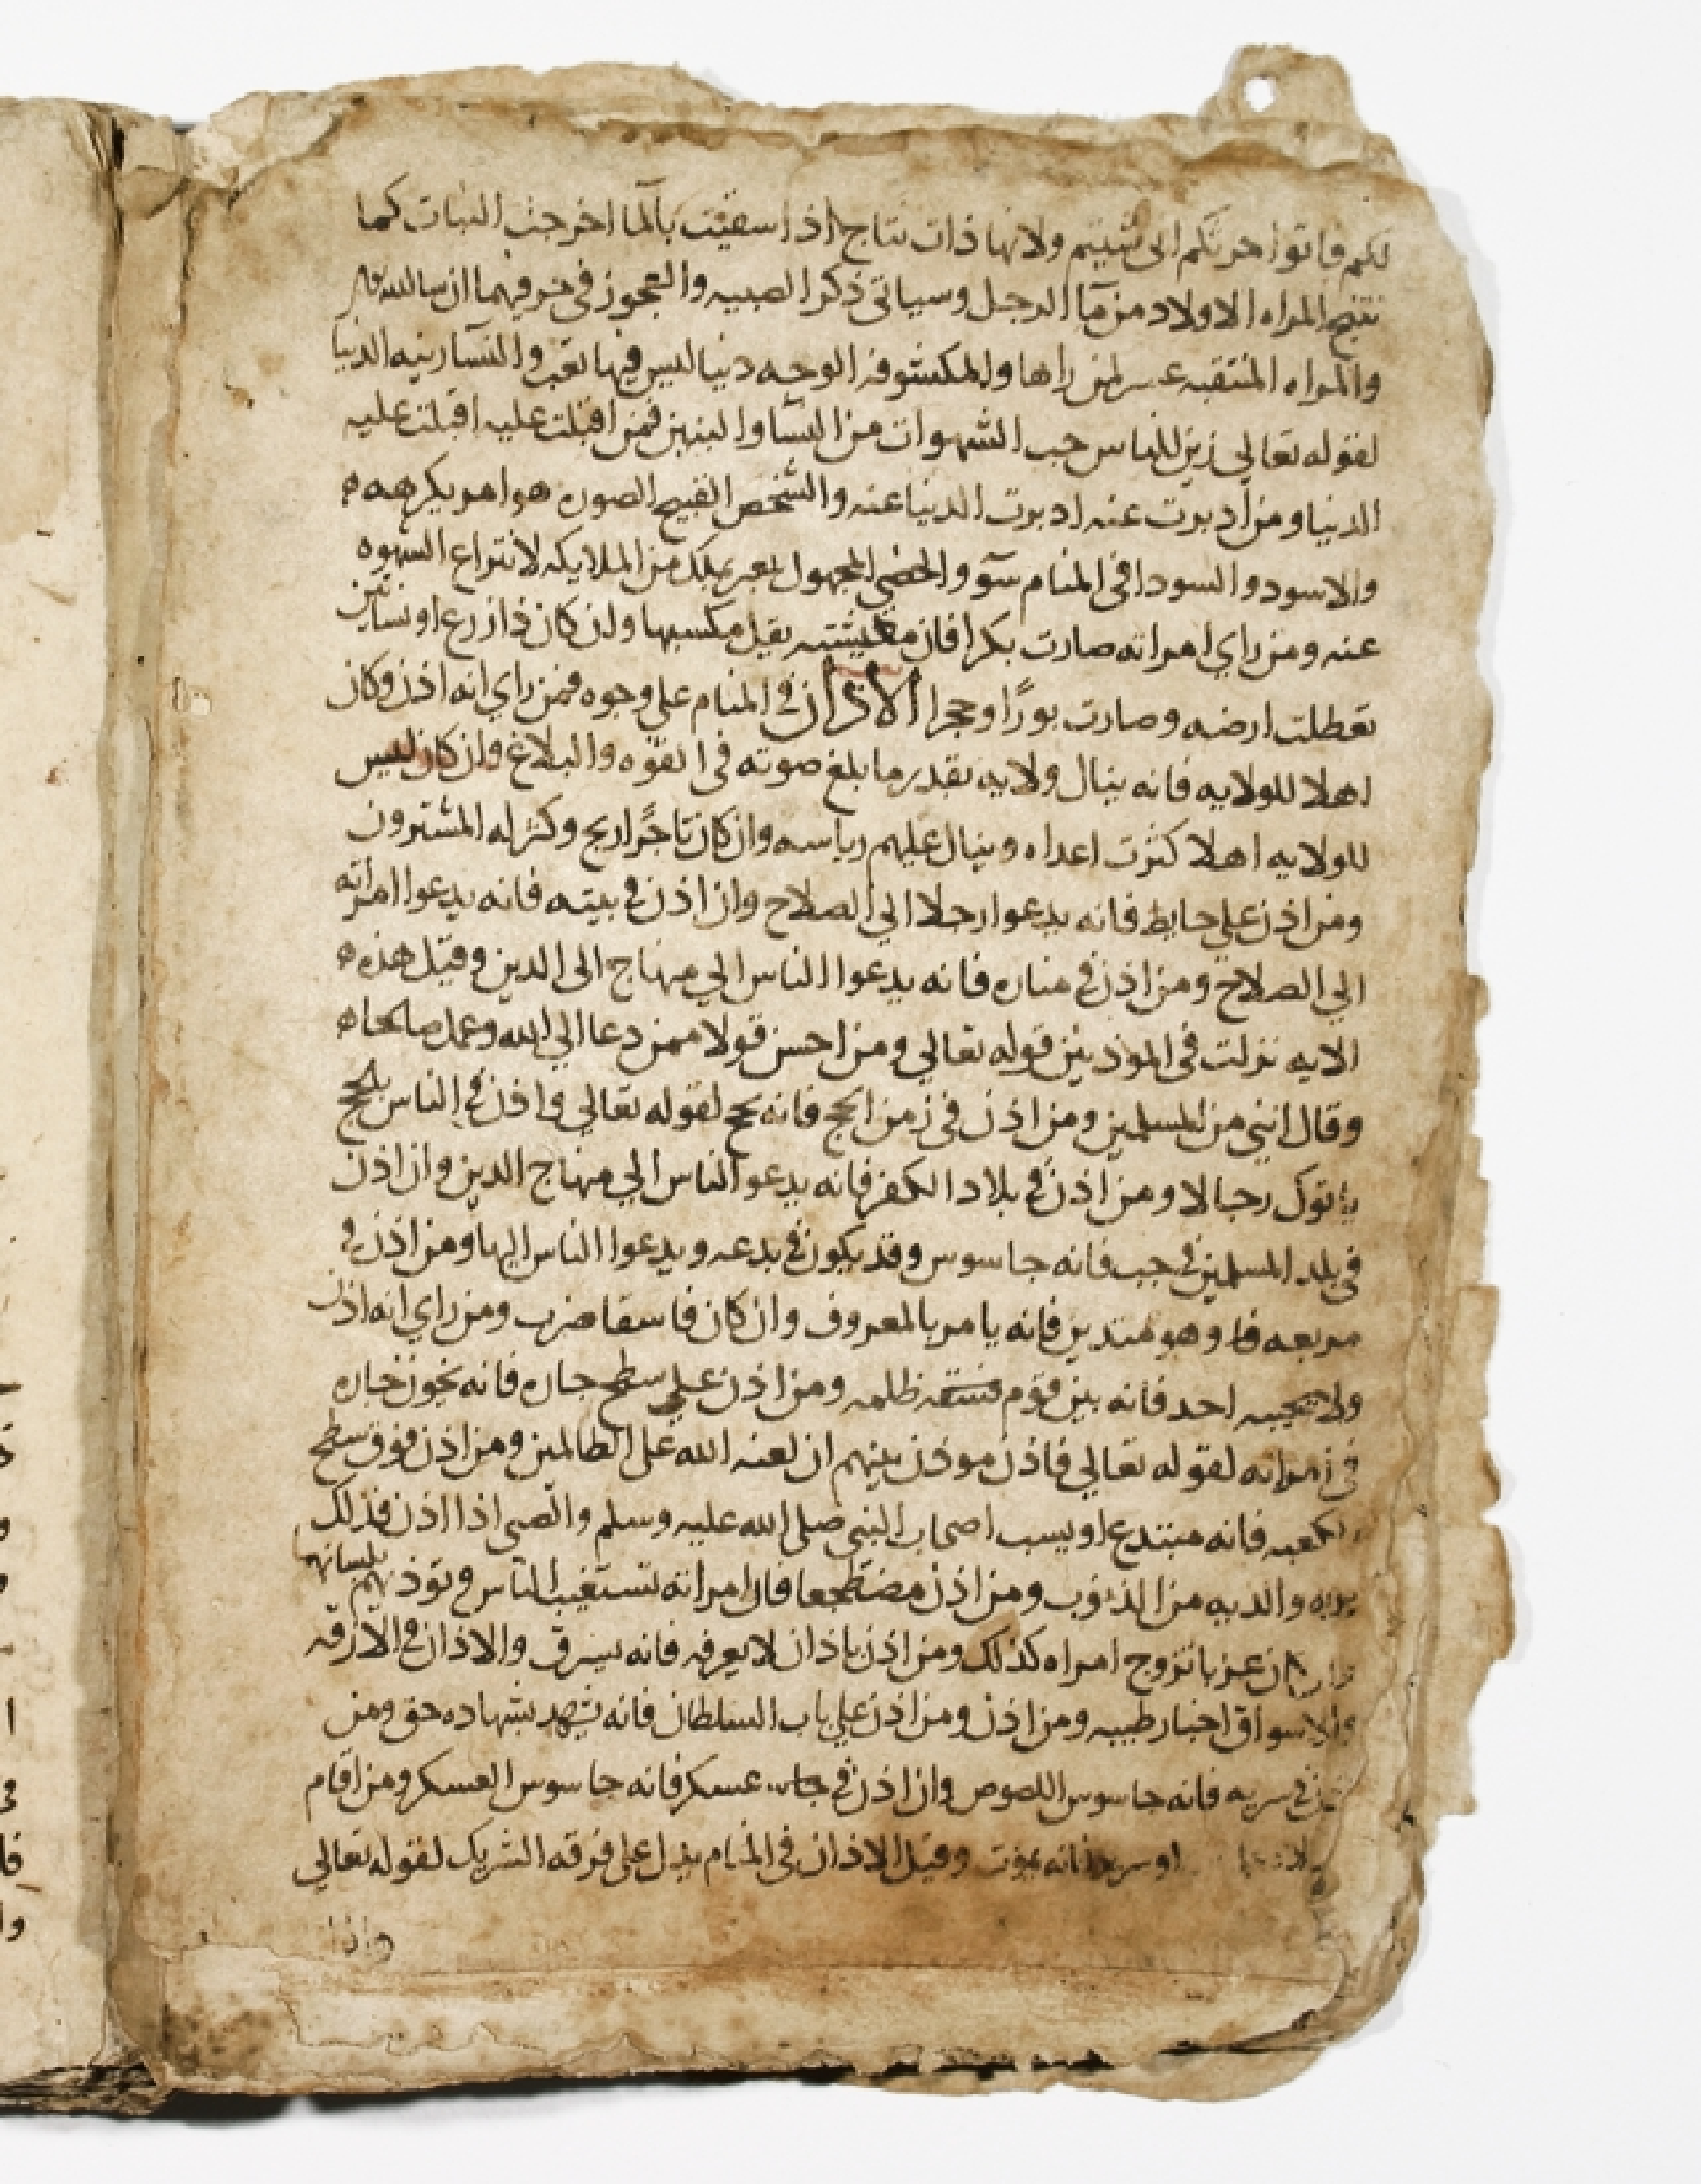 لكم فاتوا حرثكم انى شيتم ولانها ذات نتاج اذا سقيت بالما اخرجت النبات كما
تنتج المراه الاولاد من ما الرجل وسياتي ذكر الصبيه والعجوز في حرفيهما ان شا الله
والمراه المنتقبه عسر لمن راها والمكشوفه الوجه دنيا ليس فيها تعب والنسا زينه الدنيا
لقوله تعالي زين للناس حب الشهوات من النسا والبنين فمن اقبلت عليه اقبلت عليه
الدنيا ومن ادبرت عنه ادبرت الدنيا عنه والشخص القبيح الصوره هو امر يكرهه ه
والاسود والسودا في المنام سو والخصي المجهول يعبر بملك من الملايكه لانتزاع الشهوه
عنه ومن راي امراته صارت بكرا فان معيشته يقل مكسبها وان كان ذا زرع او بساتين
تعطلت ارضه وصارت بورًا وحجرا الاذان في المنام علي وجوه فمن راي انه اذن وكان
اهلا للولايه فانه ينال ولايه بقدر ما بلغ صوته في القوه والبلاغ وان كان ليس
للولايه اهلا كثرت اعداه وينال عليهم رياسه وان كان تاجرًا ربح وكثر له المشترون
ومن اذن علي حايط فانه يدعوا رجلا الي الصلاح وان اذن في بيته فانه يدعوا امراته
الي الصلاح ومن اذن في مناره فانه يدعوا الناس الي منهاج الى الدين وقيل هذه ه
الايه نزلت في الموذنين قوله تعالي ومن احسن قولا ممن دعا الي الله وعمل صالحا ه
وقال انني من المسلمين ومن اذن في زمن الحج فانه يحج لقوله تعالي واذن في الناس بالحج
ياتوك رجالا ومن اذن في بلاد الكفر فانه يدعو الناس الي منهاج الدين وان اذن
في بلد المسلمين في جب فانه جاسوس وقد يكون في بدعه ويدعوا الناس اليها ومن اذن في
مربعه وهو متدين فانه يامر بالمعروف وان كان فاسقا ضرب ومن راي انه اذن
ولا يجيبه احد فانه بين قوم فسقه ظلمه ومن اذن علي سطح جاره فانه يخون جاره
في امراته لقوله تعالي فاذن موذن بينهم ان لعنه الله على الظالمين ومن اذن فوق سطح
الكعبه فانه مبتدع او يسب اصحاب النبي صلى الله عليه وسلم والصبي اذا اذن فذلك
براه والديه من الذنوب ومن اذن مضطجعا فان امراته تستغيب الناس وتوذيهم بلسانها
وان كان عزبا تزوج امراه كذلك ومن اذن باذان لا يعرفه فانه يسرق والاذان في الازقه
والاسواق اخبار طيبه ومن اذن ومن اذن علي باب السلطان فانه يشهد بشهاده حق ومن
اذن في سريه فانه جاسوس اللصوص وان اذن في عسكر فانه جاسوس العسكر ومن اقام
او سرير فانه يموت وقيل الاذان في المنام يدل على فرقه الشريك لقوله تعالي
واذان